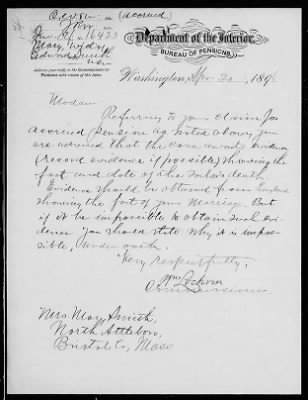 (Accrued)
Mary, wid. of
Edward Smith
Department of the Interior,
BUREAU OF PENSIONS,
Washington, 20, 1896
Madam:
Referring to your claim for
accrued pension as noted above, you
are advised that the case awaits evidence
(record evidence if possible) showing the
fact and date of the sailor's death.
Evidence should be obtained from England
showing the fact of your marriage. But
if it be impossible to obtain such evi-
dence you should state why it is impos-
sible, under oath.
Very respectfully,
Wm Lochren
Commissioner
Mrs. Mary Smith,
North Attleboro,
Bristol Co, Mass